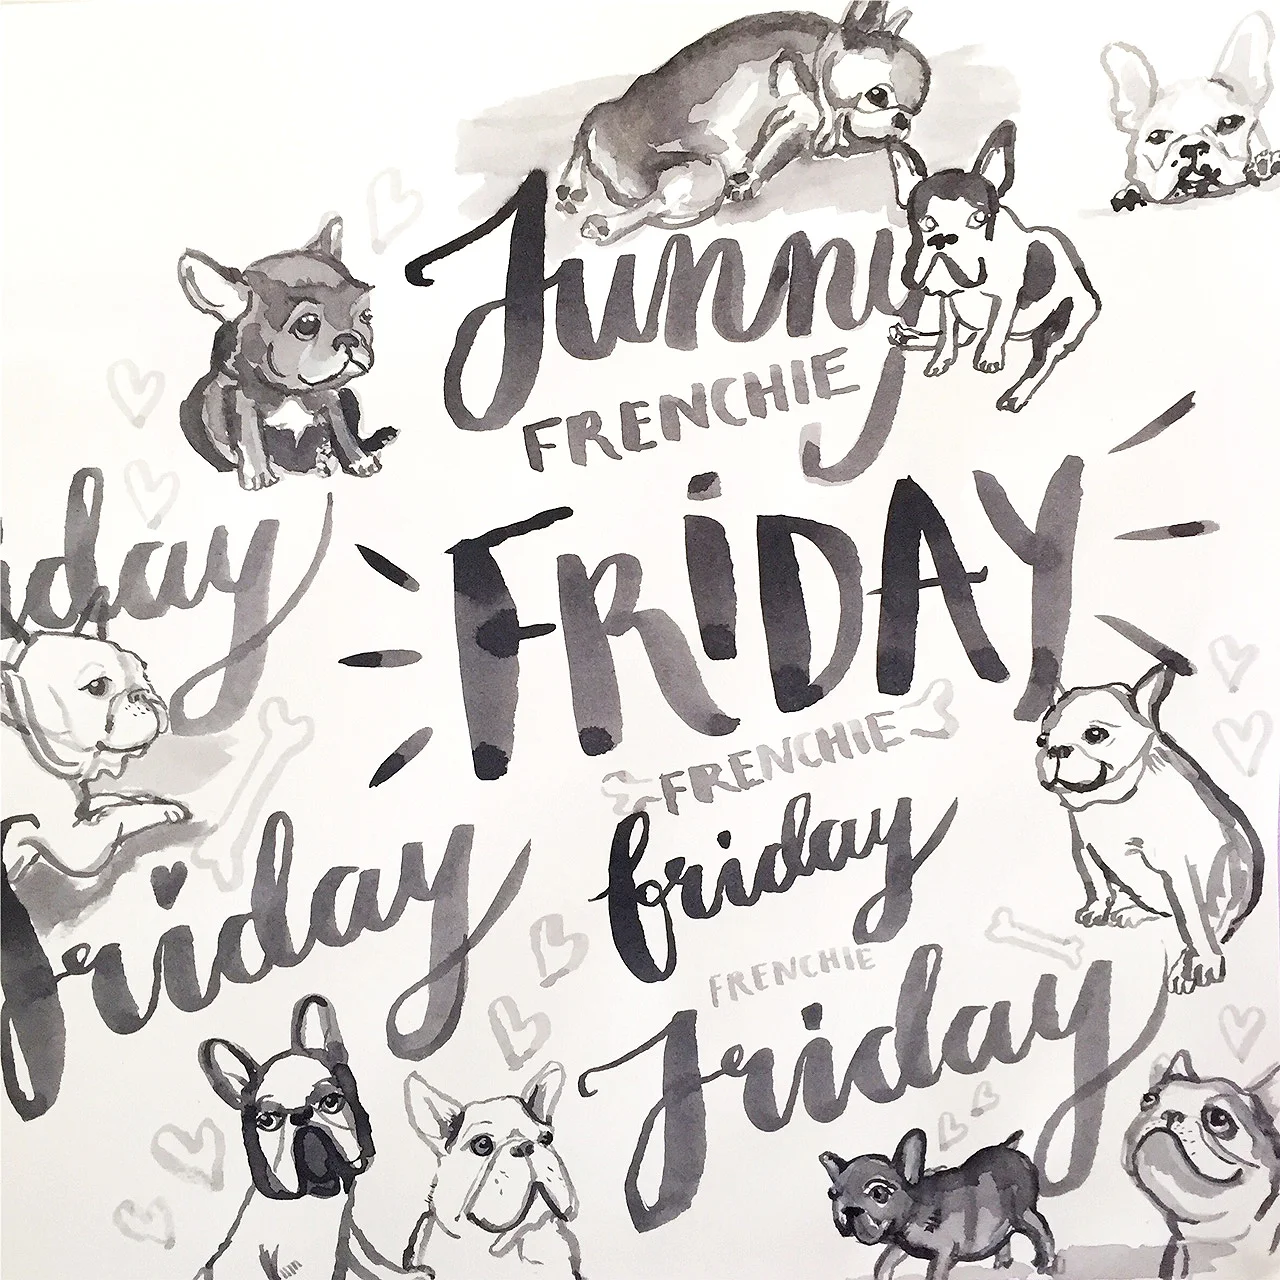 Funny
FRENCHIE
FRiDAY
iday
FRENCHIE
friday
friday
FRENCHIE
Friday